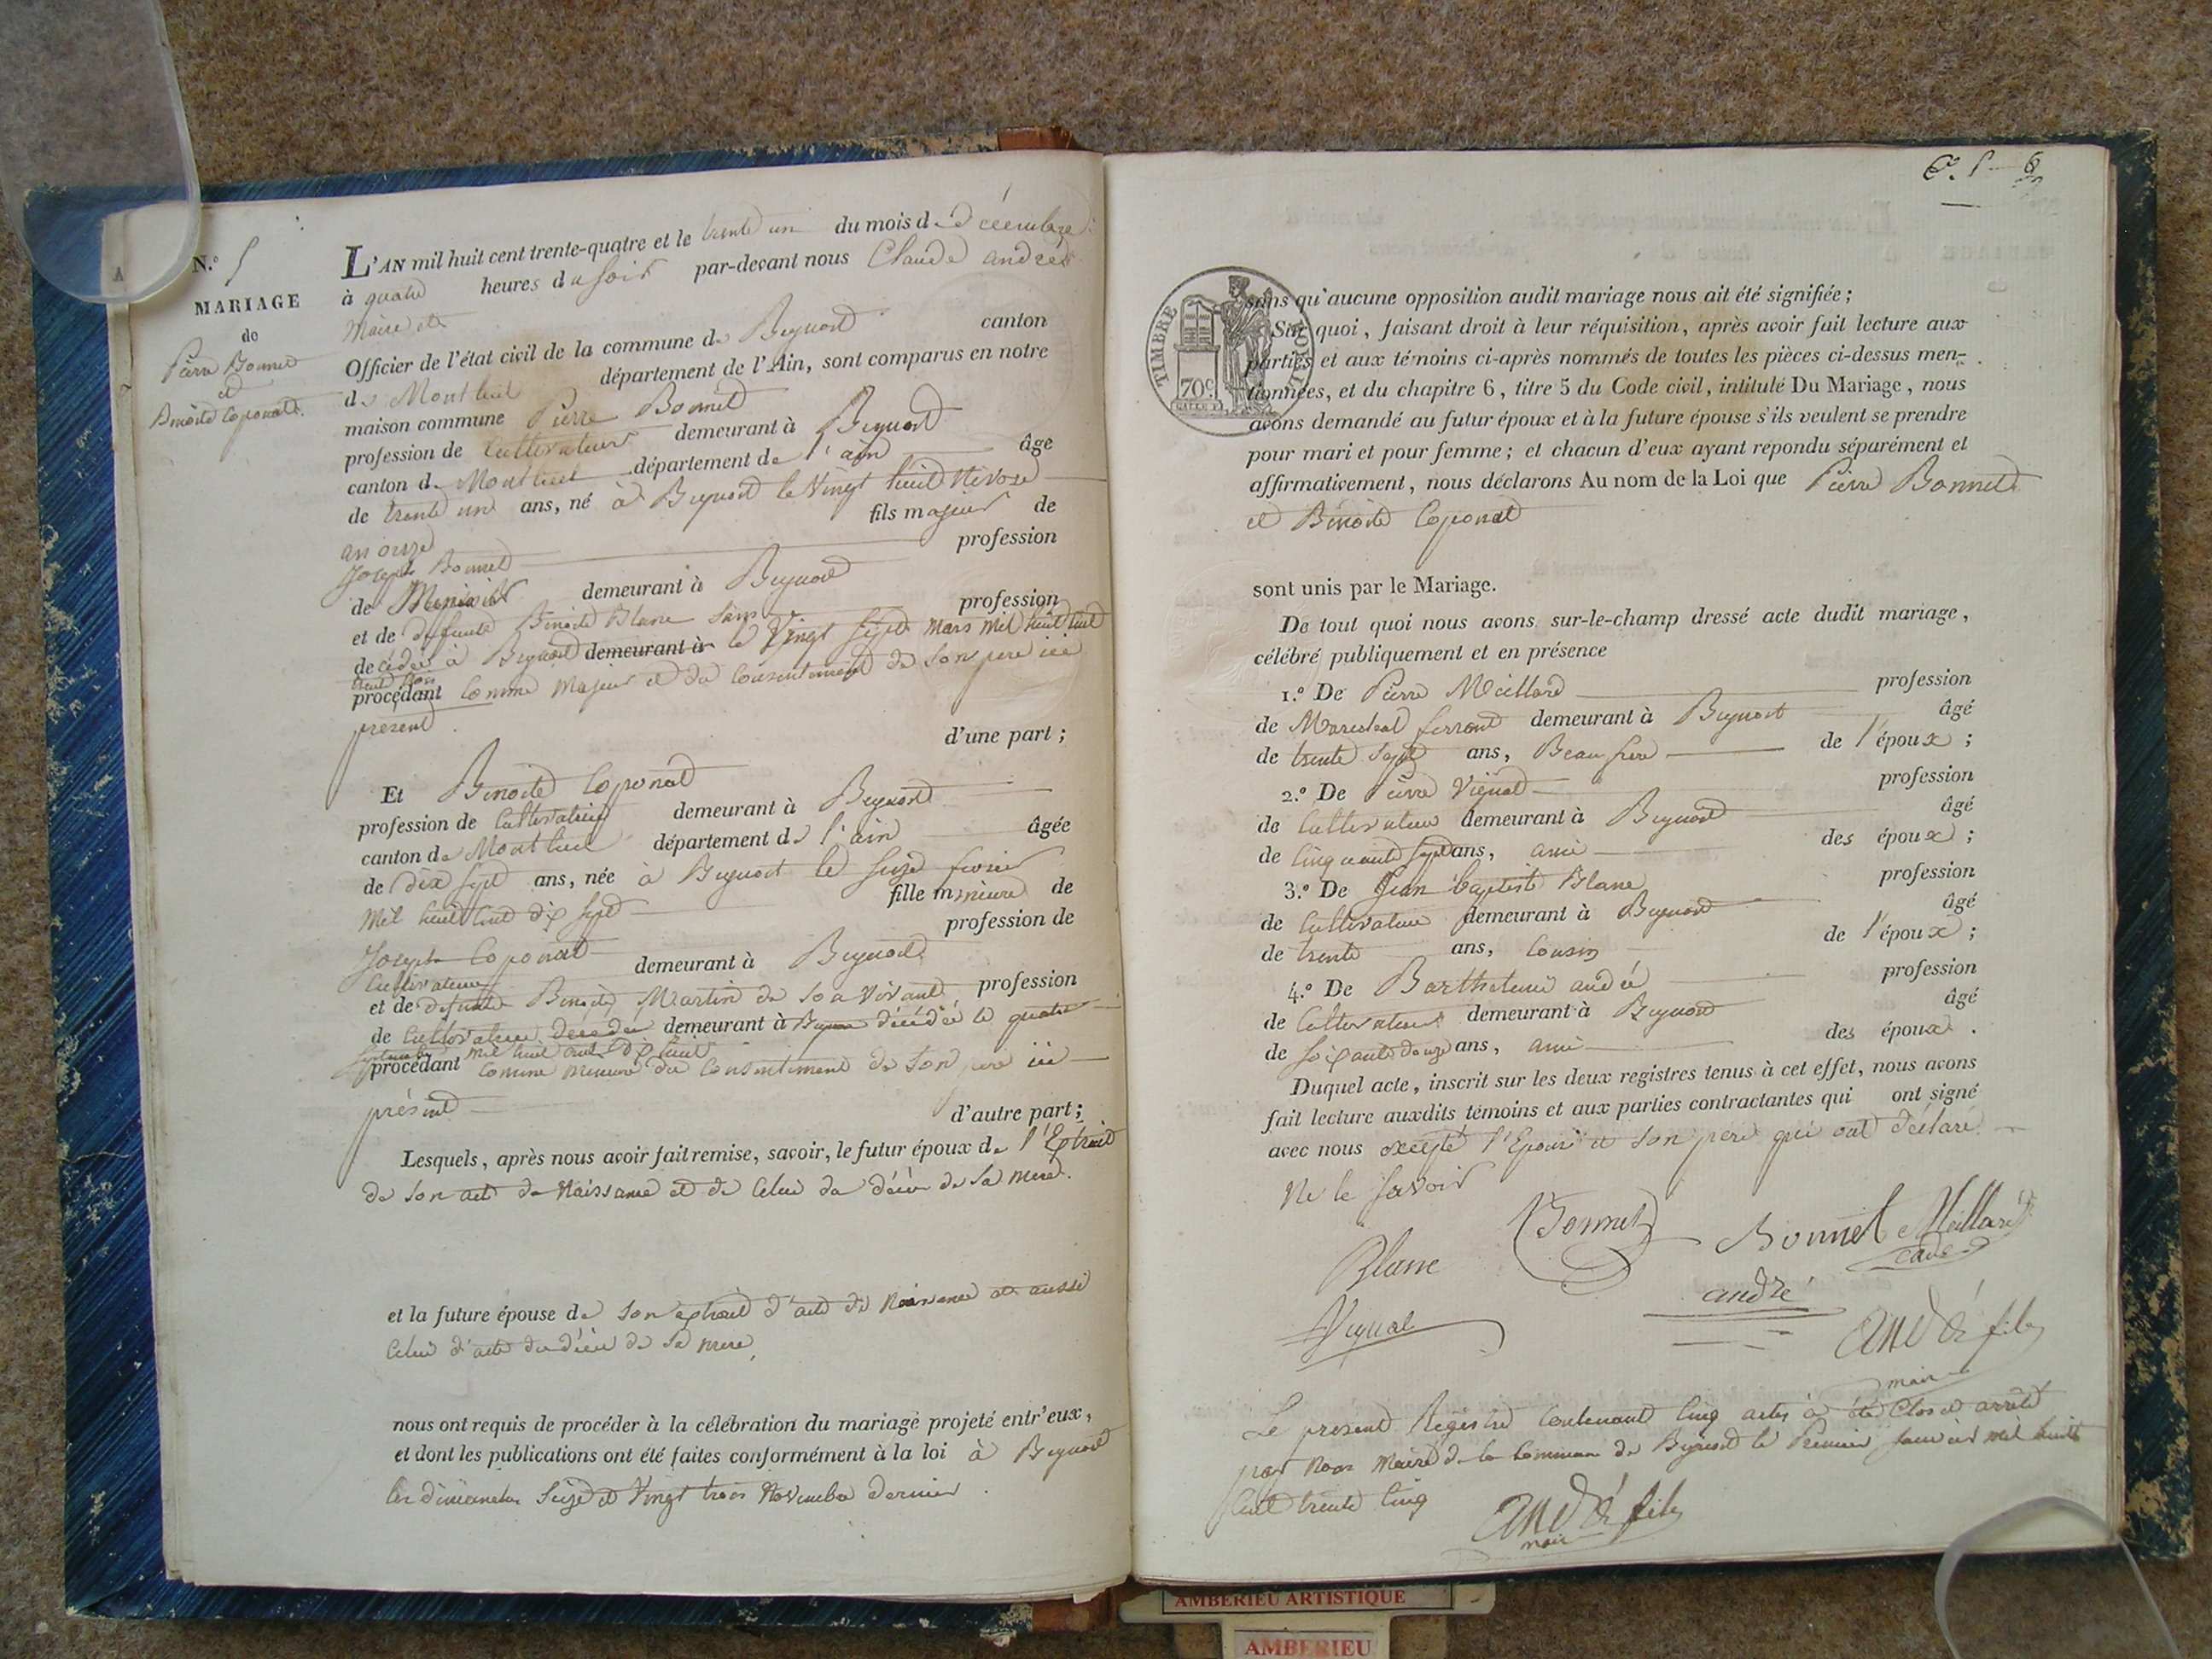 N.º 5
MARIAGE
de
Pierre Bonnet
et
Benoite Coponat.
L'AN mil huit cent trente-quatre et le trente un du mois de décembre
à quatre heures du soir par-devant nous Claude andré
Maire et
Officier de l'état civil de la commune de Beynost canton
de Montluel département de l'Ain, sont comparus en notre
maison commune Pierre Bonnet
profession de Cultivateur demeurant à Beynost
canton de Montluel département de l'ain âge
de trente un ans, né à Beynost le Vingt huit Nivose
an onze fils majeur de
Joseph Bonnet profession
de demeurant à Beynost
et de défunte Benoite Blanc sans profession
decédée à Beynost demeurant à le Vingt sept mars mil huit cent
procédant Comme Majeur et du Consentement de Son pere ici
présent
d'une part ;
Et Benoite Coponat
profession de Cultivateur demeurant à Beynost
canton de Montluel département de l'ain âgée
de dix sept ans, née à Beynost le Seize fevrier
Mil huit Cent dix Sept fille mineure de
Joseph Coponat profession de
Cultivateur demeurant à Beynost
et de défunte Benoite Martin de Son Vivant profession
de Cultivateur decedée demeurant à Beynost décédée le quatre
Septembre mil huit cent dix huit
procédant Comme mineure du Consentement de Son pere ici
présent
d'autre part ;
Lesquels, après nous avoir fait remise, savoir, le futur époux de l'Extrait
de Son acte de Naissance et de Celui de décès de Sa mere.
et la future épouse de Son extrait d'acte de Naissance et aussi
Celui d'acte de décès de Sa mere,
nous ont requis de procéder à la célébration du mariage projeté entr'eux,
et dont les publications ont été faites conformément à la loi à Beynost
les dimanches Seize et Vingt trois Novembre dernier.
TIMBRE ROYAL
70c.
sans qu'aucune opposition audit mariage nous ait été signifiée ;
Sur quoi, faisant droit à leur réquisition, après avoir fait lecture aux
parties et aux témoins ci-après nommés de toutes les pièces ci-dessus men-
tionnées, et du chapitre 6, titre 5 du Code civil, intitulé Du Mariage, nous
avons demandé au futur époux et à la future épouse s'ils veulent se prendre
pour mari et pour femme ; et chacun d'eux ayant répondu séparément et
affirmativement, nous déclarons Au nom de la Loi que Pierre Bonnet
et Benoite Coponat
sont unis par le Mariage.
De tout quoi nous avons sur-le-champ dressé acte dudit mariage,
célébré publiquement et en présence
1.º De Pierre Meillard profession
de Marechal ferrant demeurant à Beynost âgé
de trente Sept ans, Beau frere de l'époux ;
2.º De Pierre Vignat profession
de Cultivateur demeurant à Beynost âgé
de Cinquante Sept ans, ami des époux ;
3.º De Jean baptiste Blanc profession
de Cultivateur demeurant à Beynost âgé
de trente ans, Cousin de l'époux ;
4.º De Barthelemi andré profession
de Cultivateur demeurant à Beynost âgé
de Soixante douze ans, ami des époux.
Duquel acte, inscrit sur les deux registres tenus à cet effet, nous avons
fait lecture auxdits témoins et aux parties contractantes qui ont signé
avec nous excepté l'Epouse et Son pere qui ont déclaré
Ne le Savoir
Blanc Bonnet Bonnet Meillard
andré
Vignat andré fils
maire
Le present Registre Contenant Cinq actes à été Clos et arrêté
par Nous Maire de la Commune de Beynost le Premier Janvier mil huit
Cent trente Cinq
andré fils
maire
AMBERIEU ARTISTIQUE
AMBERIEU